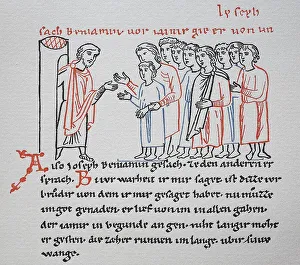 Ioseph
sach Beniamin vor iamir gie er von un
Also Ioseph Beniamin gesach. ze den anderen er
sprach. Bi wr warheit ir mir saget ist ditze iwr
brudir von dem ir mir gesaget habet. nu muzze
im got genaden. er lief von in allen gahen.
der iamir in begunde an gen. niht langir moht
er gesten. die zaher runnen im lange. ubir siniv
wange.